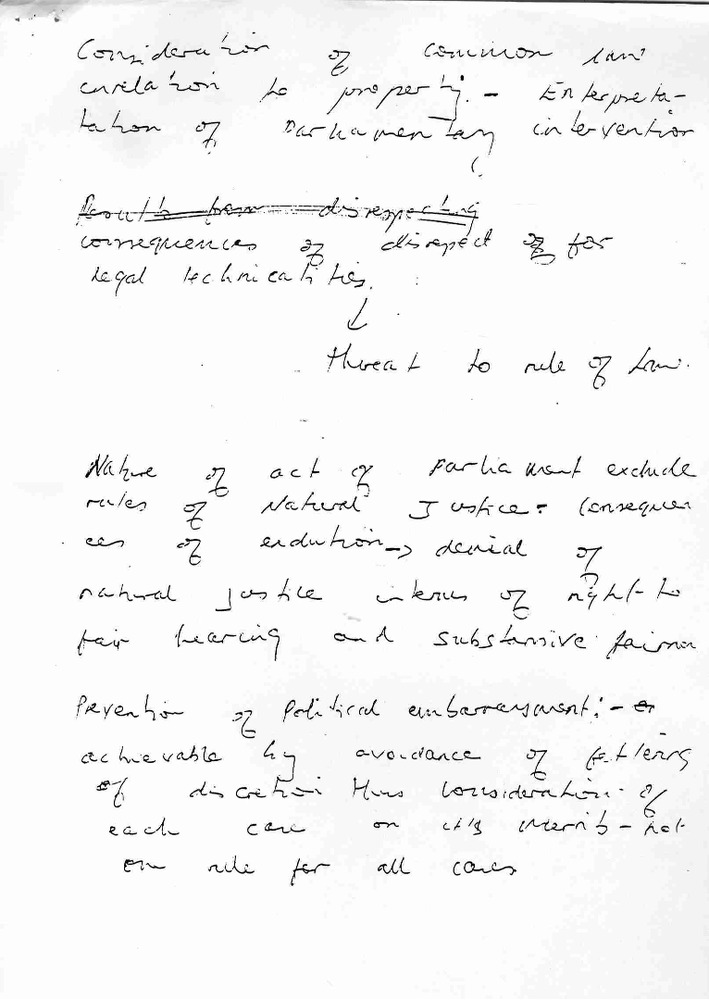 Consideration of common law
in relation to property. - Enterpreta-
tation of Parliamentary intervention
Results from disrespecting
consequences of disrepect of for
legal technicalities.
↓
threat to rule of law.
Nature of act of Parliament exclude
rules of Natural Justice = Consequen
ces of -> denial of
natural justice in terms of right to
fair hearing and substansive
Prevention of Political embarrassment: -
achievable by avoidance of fettering
of discretion thus consideration of
each case on it's merits - not
one rule for all cases